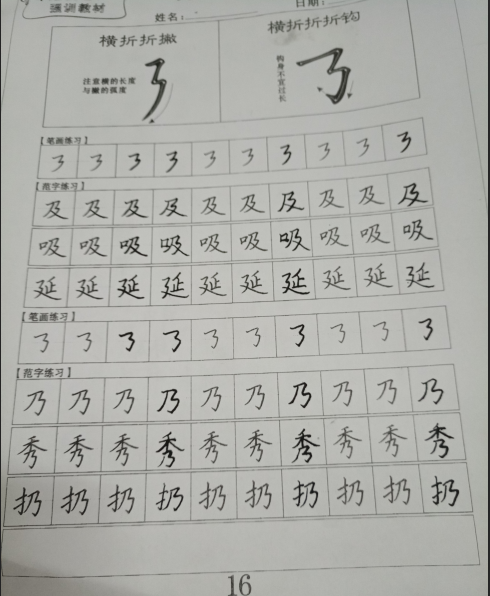 通训教材
姓名： 日期：
横折折撇 横折折折钩
注意横的长度
与撇的弧度
钩身不宜过长
【笔画练习】
㇋ ㇋ ㇋ ㇋ ㇋ ㇋ ㇋ ㇋ ㇋ ㇋
【范字练习】
及 及 及 及 及 及 及 及 及 及
吸 吸 吸 吸 吸 吸 吸 吸 吸 吸
延 延 延 延 延 延 延 延 延 延
【笔画练习】
㇡ ㇡ ㇡ ㇡ ㇡ ㇡ ㇡ ㇡ ㇡ ㇡
【范字练习】
乃 乃 乃 乃 乃 乃 乃 乃 乃 乃
秀 秀 秀 秀 秀 秀 秀 秀 秀 秀
扔 扔 扔 扔 扔 扔 扔 扔 扔 扔
16